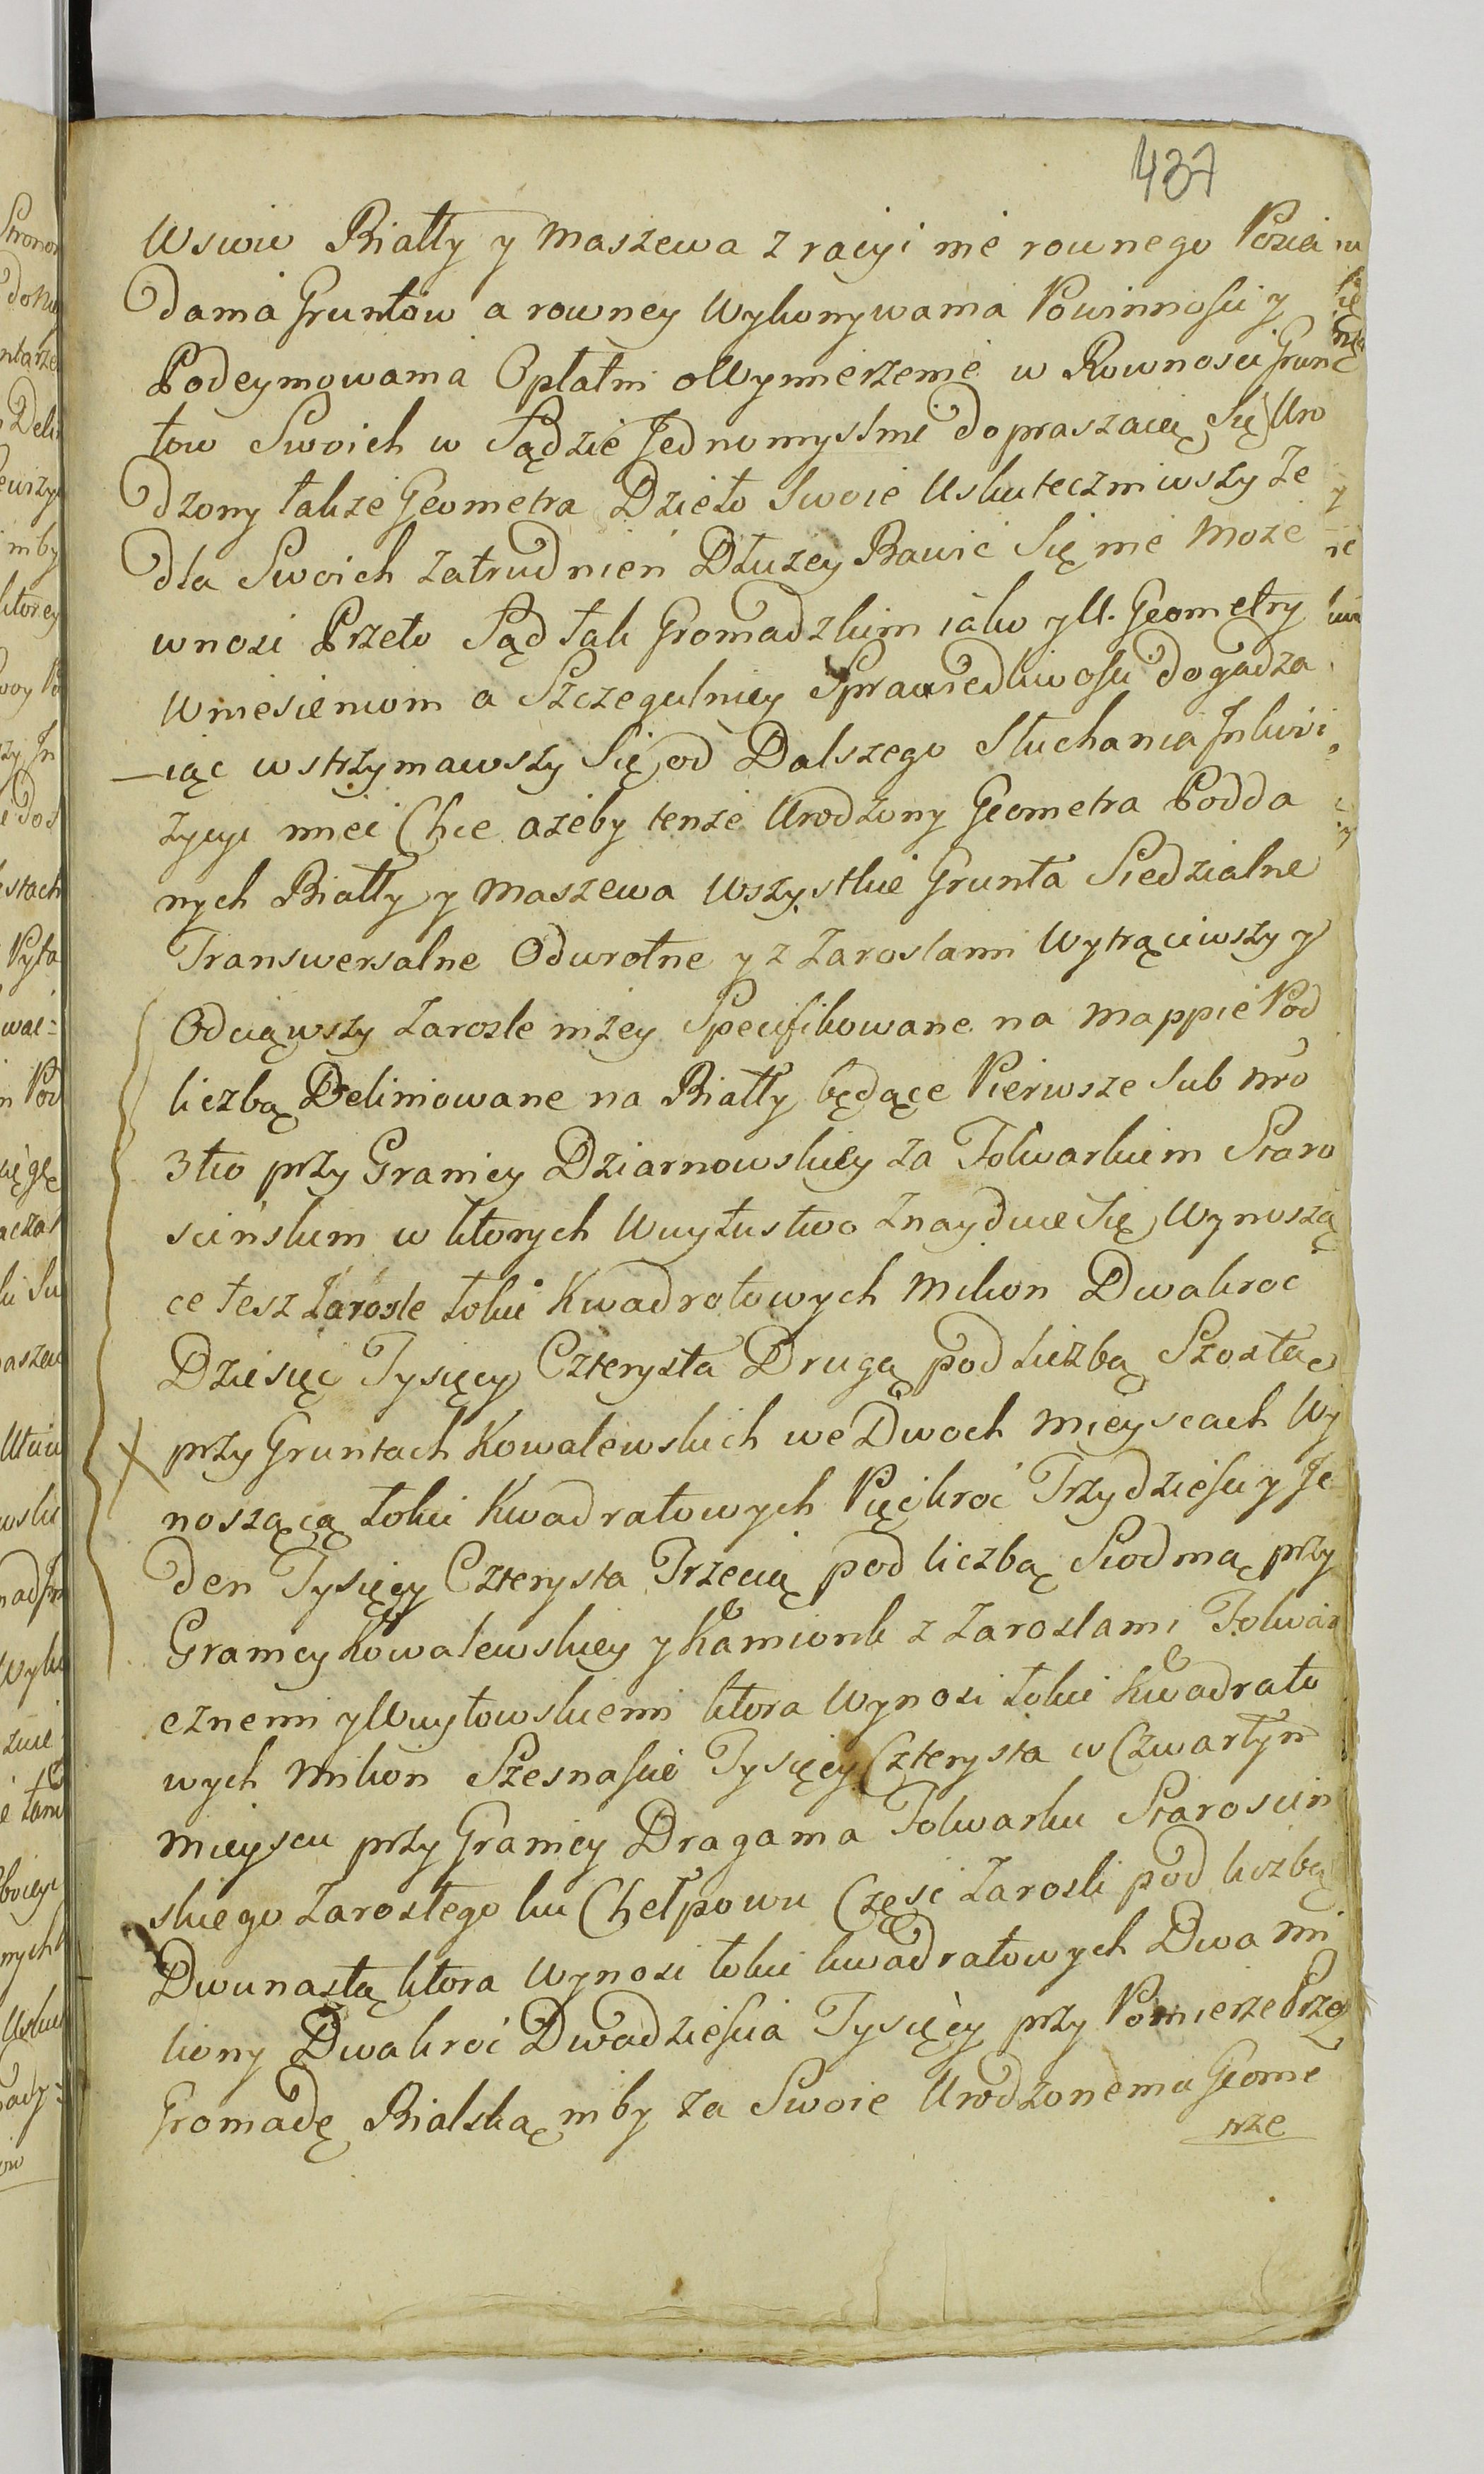 437
Wsiów Biały y Maszewa z racyi nie rownego Posia
dania Gruntow a rowney Wykonywania Powinności y
Podeymowania Opłatni o Wymierzenie w Rowności Grun
tow Swoich w Sądzie Jednomyślnie dopraszaią Się Uro
dzony także Geometra Dzieło Swoie Uskuteczniwszy że
dla Swoich Zatrudnień Dłużey Bawić Się nie Może
wnosi Przeto Sąd tak Gromadzkim iako y U. Geometry
Wniesieniom a Szczegulniey Sprawiedliwości dogadza
iąc wstrzymawszy Się od Dalszego Słuchania Inkwi
zycyi mieć Chce ażeby tenże Urodzony Geometra Podda
nych Biały y Maszewa Wszystkie Grunta Siedzialne
Transwersalne Odwrotne y z Zaroslami Wytrąciwszy y
Odciąwszy Zarosle niżey Specifikowane na Mappie Pod
liczbą Deliniowane na Biały będące Pierwsze Sub Nro
3tio przy Granicy Dziarnowskiey za Folwarkiem Staro
scińskim w ktorych Wuytustwo Znayduie Się Wynoszą
ce tesz Zarosle Łokci Kwadratowych Milion Dwakroc
Dziesięć Tysięcy Czterysta Drugą pod Liczbą Szostą
przy Gruntach Kowalewskich we Dwoch Mieyscach Wy
noszącą Łokci Kwadratowych Pięckroć Trzydzieści y Je
den Tysięcy Czterysta Trzecią pod liczbą Siodmą przy
Granicy Kowalewskiey y Kamionk z Zaroslami Folwar
cznemi y Wuytowskiemi ktora Wynosi Łokci Kwadrato
wych Milion Szesnaście Tysięcy Czterysta w Czwartym
Mieyscu przy Granicy Dragania Folwarku Staroscin
skiego Zarosłego ku Chełpowu Częsć Zarosli pod liczbą
Dwunastą ktora Wynosi Łokci kwadratowych Dwa Mi
liony Dwakroć Dwadzieścia Tysięcy przy Pomierze Przez
Gromadę Bialską niby za Swoie Urodzonemu Geome
trze